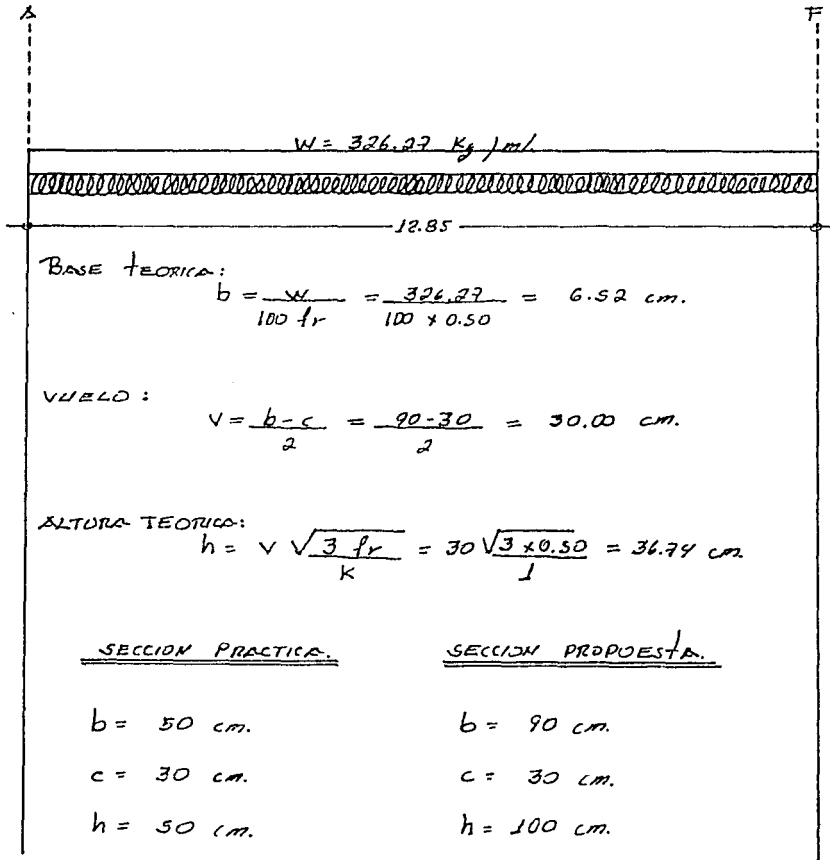 A F
W = 326.27 Kg/ml.
12.85
BASE TEORICA:
b = w / 100 fr = 326.27 / 100 x 0.50 = 6.52 cm.
VUELO:
V = b-c / 2 = 90-30 / 2 = 30.00 cm.
ALTURA TEORICA:
h = V √ 3 fr / K = 30 √ 3 x 0.50 / 1 = 36.74 cm.
SECCION PRACTICA. SECCION PROPUESTA.
b = 50 cm. b = 90 cm.
c = 30 cm. c = 30 cm.
h = 50 cm. h = 100 cm.